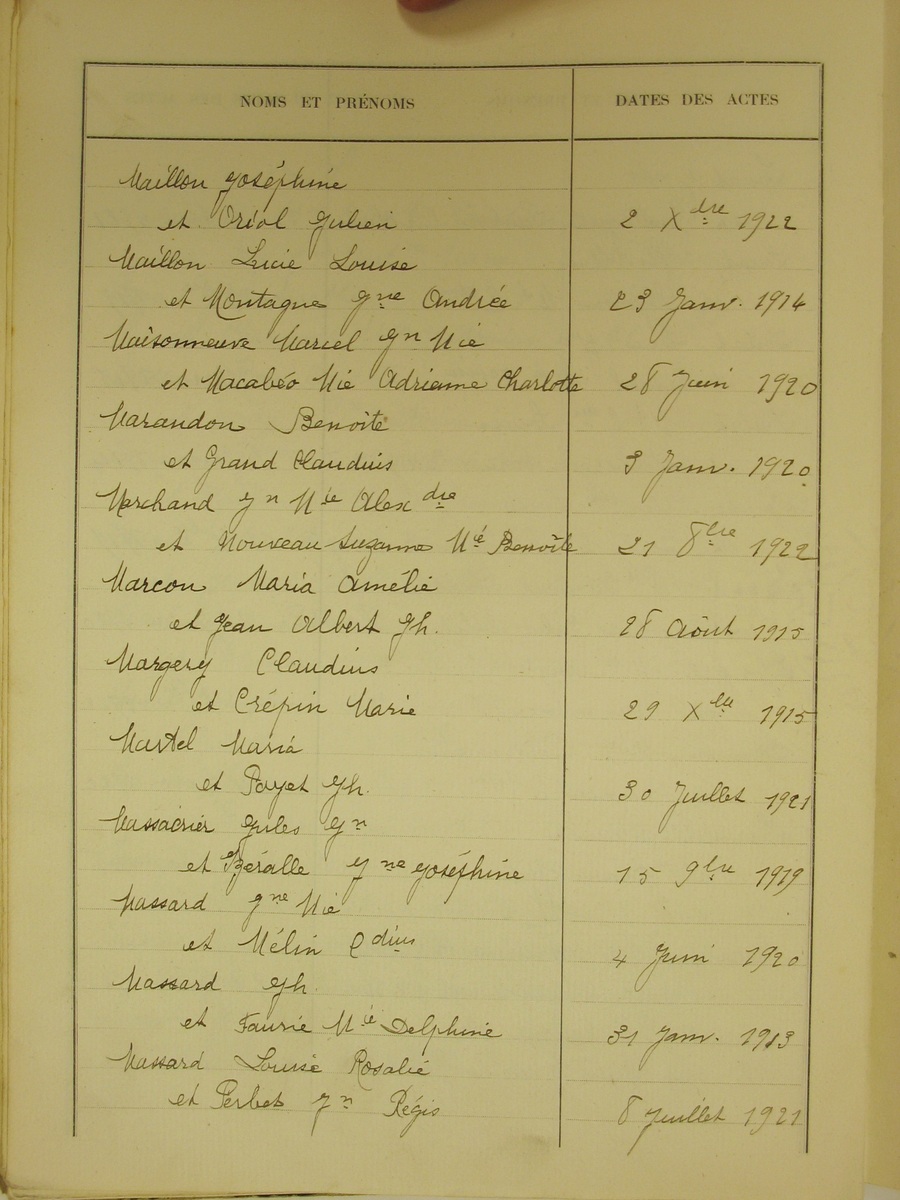 NOMS ET PRÉNOMS DATES DES ACTES
Maillon Joséphine
et Oriol Julien 2 Xbre 1922
Maillon Lucie Louise
et Montagne Jne Andrée 23 Janv. 1914
Maisonneuve Marcel Jn Mie
et Macabéo Mie Adrienne Charlotte 28 Juin 1920
Marandon Benoîte
et Grand Claudius 3 Janv. 1920
Marchand Jn Mie Alexdre
et Nouveau Suzanne Mie Benoîte 21 8bre 1922
Marcon Maria Amélie
et Jean Albert Jh. 28 Août 1915
Margery Claudius
et Crépin Marie 29 Xbre 1915
Martel Maria
et Payet Jh. 30 Juillet 1921
Massacrier Jules Jn
et Béralle Jne Joséphine 15 9bre 1919
Massard Jne Mie
et Mélin Cdius 4 Juin 1920
Massard Jh.
et Faurie Mie Delphine 31 Janv. 1913
Massard Louise Rosalie
et Perbet Jn Régis 8 Juillet 1921